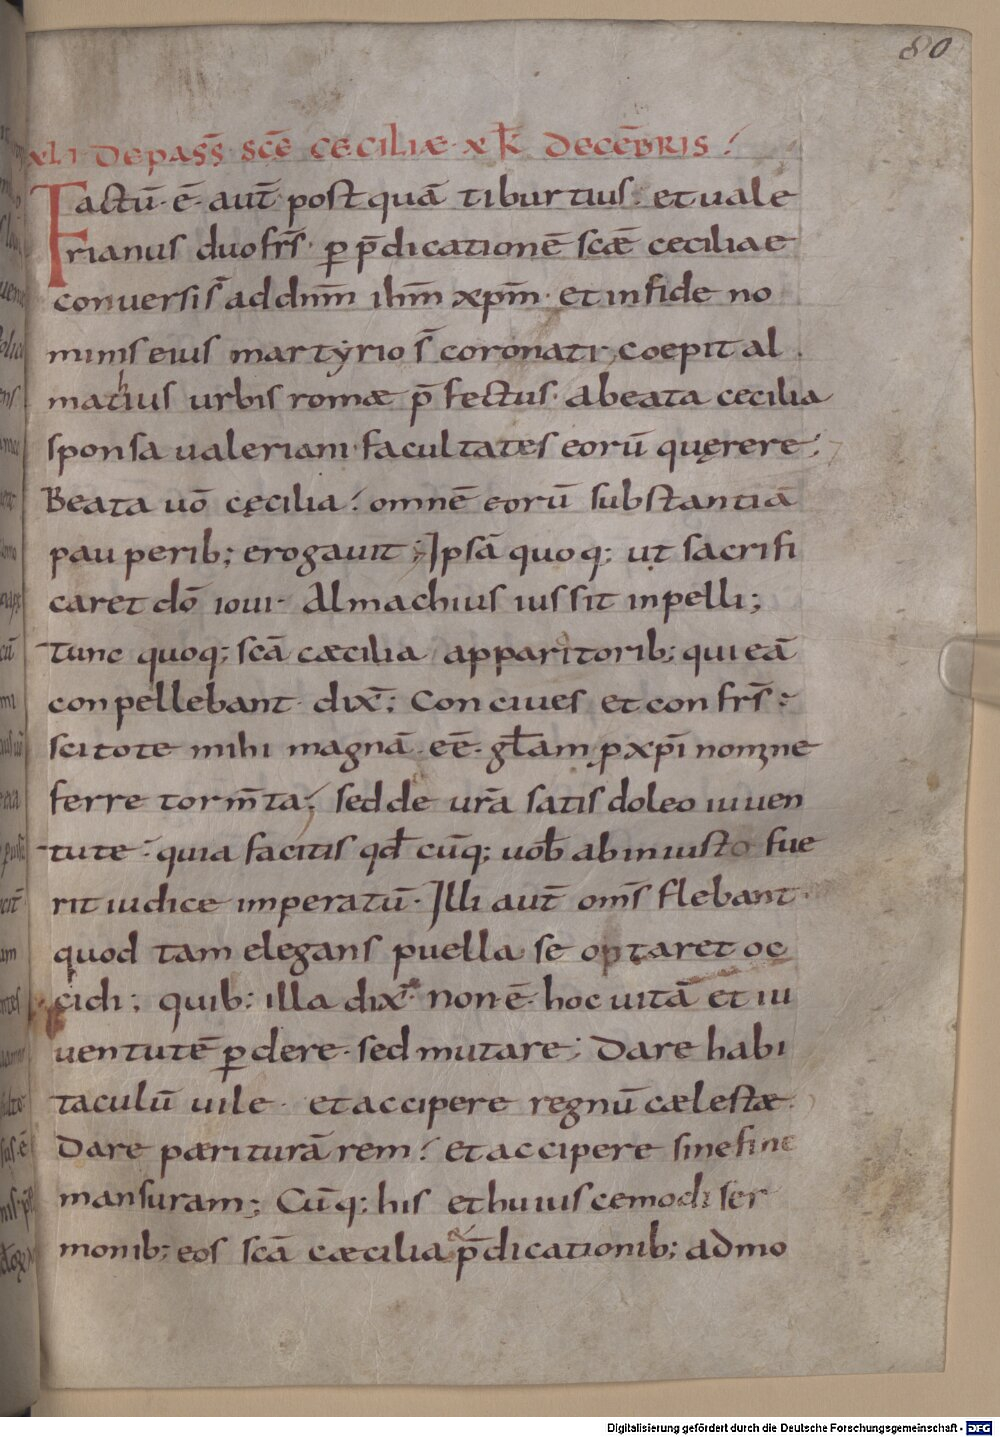 80
xLI· DE PASS̄· SCĒ CECILIAE· X K̄ DECĒBRIS·
Factū· ē· aut̄ postquā tiburtius· et uale
rianus duo frs̄· ꝑ p̄dicationē scǣ ceciliae
conversis̄ ad dn̄m ih̄m xp̄m· et in fide no
minis eius martyrio s̄ coronati, coepit al
mathius urbis romæ p̄fectus· a beata cecilia
sponsa ualeriani· facultates eorū quęrere;
Beata uō cęcilia· omnē eorū substantiā
pauperib; erogauit; Ipsā quoq; ut sacrifi
caret dō ioui· Almachius iussit inpelli;
Tunc quoq; scā cæcilia apparitorib; qui eā
conpellebant· dix̄; Concives et confrs̄·
scitote mihi magnā· eē· gl̄am ꝑ xp̄i nomine
ferre torm̄ta; sed de ur̄a satis doleo iuuen
tute· quia facitis qd̄ cūq; uob̄ ab iniusto fue
rit iudice imperatū· Illi aut̄ oms̄ flebant·
quod tam elegans puella se optaret oc
cidi; quib; illa dix̄· Non· ē· hoc uitā et iu
uentutē ꝑdere· sed mutare; Dare habi
taculū uile· et accipere regnū cælestæ·
Dare pæriturā rem· et accipere sine fine
mansuram; Cūq; his et huiuscemodi ser
monib; eos scā cæcilia & p̄dicationib; admo
Digitalisierung gefördert durch die Deutsche Forschungsgemeinschaft - DFG